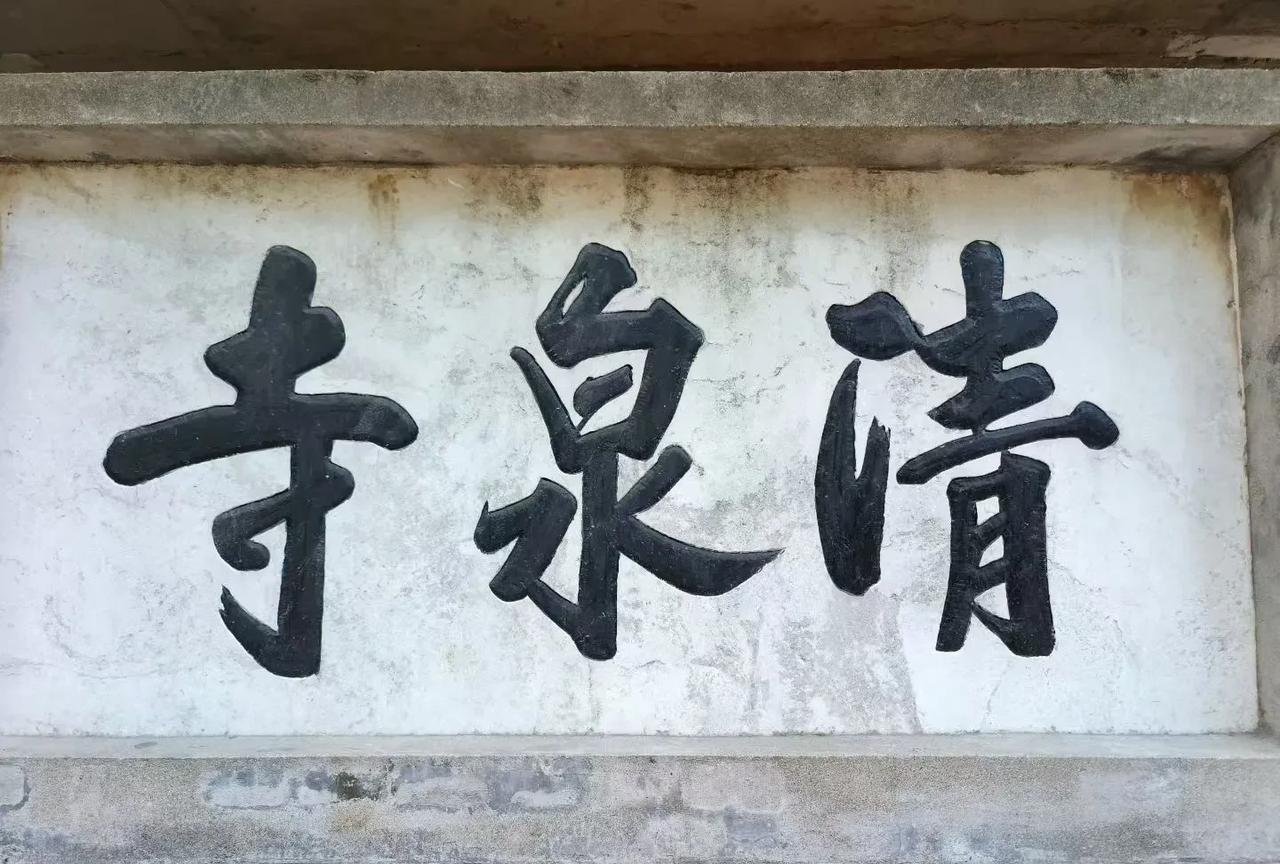 清泉寺